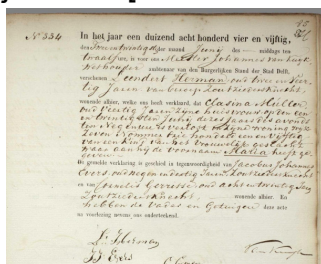 Nº 334
In het jaar een duizend acht honderd vier en vijftig,
den der maand Juny des middags ten
twaalf ure, is voor ons Meester Johannes van Kuyk
Wethouder ambtenaar van den Burgerlijken Stand der Stad Delft,
verschenen Leendert Herman oud twee en veertig
Jaren van beroep Zoutziedersknecht,
wonende alhier, welke ons heeft verklaard, dat Clasina Mullon
oud Veertig Jaren Zijne huisvrouw op den een
en twintigsten Juny dezes jaars des avonds
ten Negen ure is verlost in hare woning wyk
Zeven Nommer drie honderd een en vijftig
van een Kind van het vrouwelijk geslacht
waar aan hij de voornaam Maria heeft ge
geven
De gemelde verklaring is geschied in tegenwoordigheid van Jacobus Johannes
Evers oud negen en dertig Jaren Zoutziedersknecht
en van Cornelis Gerresse oud acht en twintig Jaren
Zoutziedersknecht, wonende alhier En
hebben de Vader en Getuigen deze acte
na voorlezing nevens ons onderteekend.
L. Herman
JJ Evers